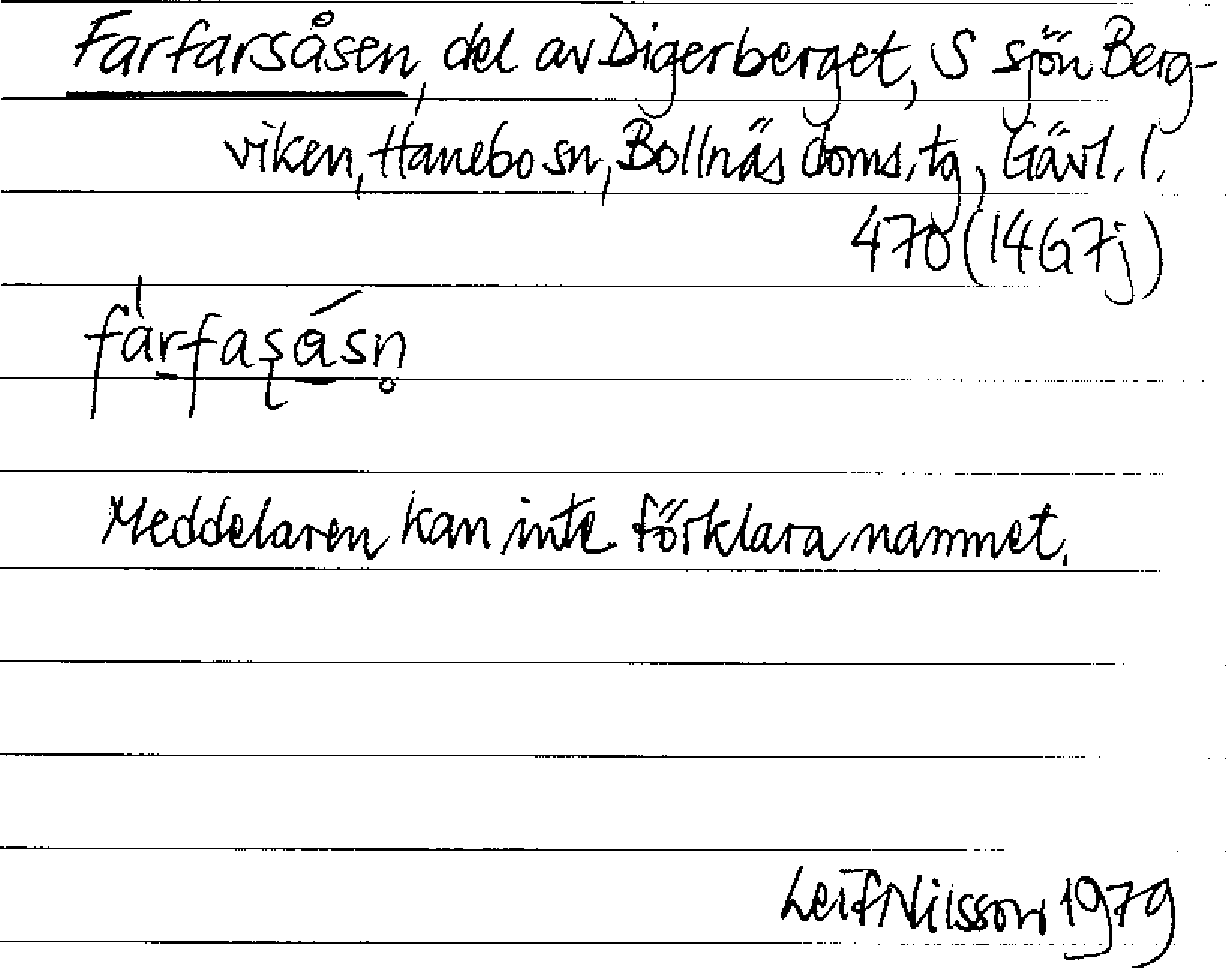 Farfarsåsen, del av Digerberget, S sjön Berg-
viken, Hanebo sn, Bollnäs doms.tg, Gävl. l.
470 (14G7j)
fàrfaʂásn̥
Meddelaren kan inte förklara namnet.
Leif Nilsson 1979